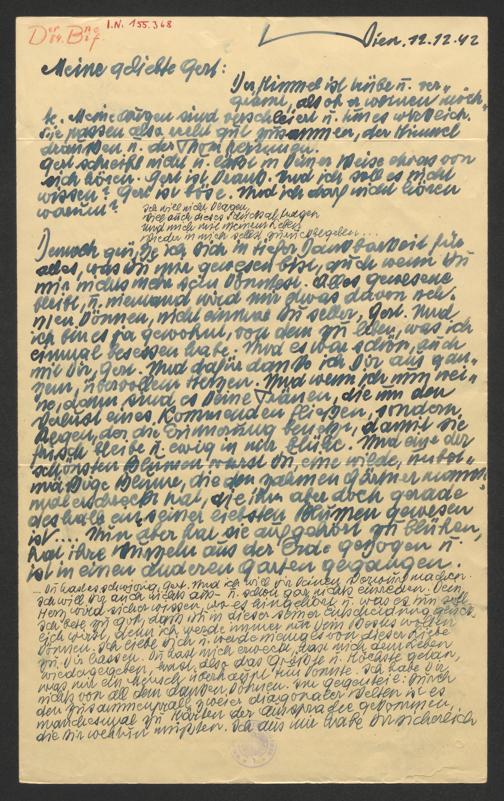 I.N. 155.368
Wien, 12.12.42
Meine geliebte Gert:
Der Himmel ist trübe u. ver-
grämt, als ob er weinen möch-
te. Meine Augen sind verschleiert u. tun es wirklich.
Sie passen also recht gut zusammen, der Himmel
draussen u. der
Gert schreibt nicht u. lässt in keiner Weise etwas von
sich hören. Gert ist krank. Und ich soll es nicht
wissen? Gert ist böse. Und ich darf nicht hören
warum?
Ich will nicht klagen,
will auch dieses Schicksal tragen
und mich mit meinem Leben
wieder in mich selbst zurückbegeben...
Dennoch grüße ich Dich in tiefer Dankbarkeit für
alles, was Du mir gewesen bist, auch wenn Du
mir nichts mehr sein könntest. Alles gewesene
bleibt, u. niemand wird mir etwas davon neh-
men können, nicht einmal Du selber, Gert. Und
ich bin es ja gewohnt, von dem zu leben, was ich
einmal besessen habe. Und es war schön, auch
mit Dir, Gert. Und dafür danke ich Dir aus gan-
zem, übervollem Herzen. Und wenn ich nun wei-
ne, dann sind es keine Tränen, die um den
Verlust eines Kommenden fließen, sondern
Regen, der die Erinnerung benetzt, damit sie
frisch bleibe u. ewig in mir blühe. Und eine der
schönsten Blumen warst Du, eine wilde,
Blume, die den zahmen Gärtner manch-
mal erschreckt hat, die ihm aber doch gerade
deshalb eine seiner liebsten Blumen gewesen
ist.... Nun aber hat sie aufgehört zu blühen,
hat ihre Wurzeln aus der Erde gezogen u.
ist in einen anderen Garten gegangen.
... Du hast es schwierig, Gert. Und ich will Dir keinen Vorwurf machen.
Ich will Dir auch nichts aus- u. schon gar nichts einreden. Dein
Herz wird sicher wissen, wo es hingehört u. was es tun soll.
Ich bete zu Gott, dass Du in dieser Deiner Entscheidung glück-
lich wirst, denn ich werde immer nur Dein Bestes wollen
können. Ich liebe Dich u. werde niemals von dieser Liebe
zu Dir lassen. Du hast mich erweckt, hast mich dem Leben
wiedergegeben, hast also das Größte u. Höchste getan,
was nur ein Mensch überhaupt tun konnte. Ich habe Dir
nichts von all dem danken können. Im Gegenteil: durch
den Zusammenprall zweier diagonaler Welten ist es
manchesmal zu Härten der Aussprache gekommen,
die Dir wehtun mußten. Ich aus mir habe Dir sicherlich